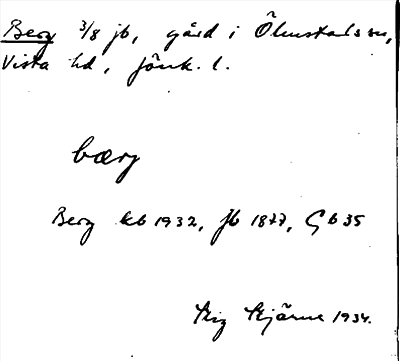 Berg 3/8 jb, gård i Ölmstads sn,
Vista hd, Jönk. l.
bærj
Berg kb 1932, jb 1877, Gb 35
Stig Hjärne 1934.